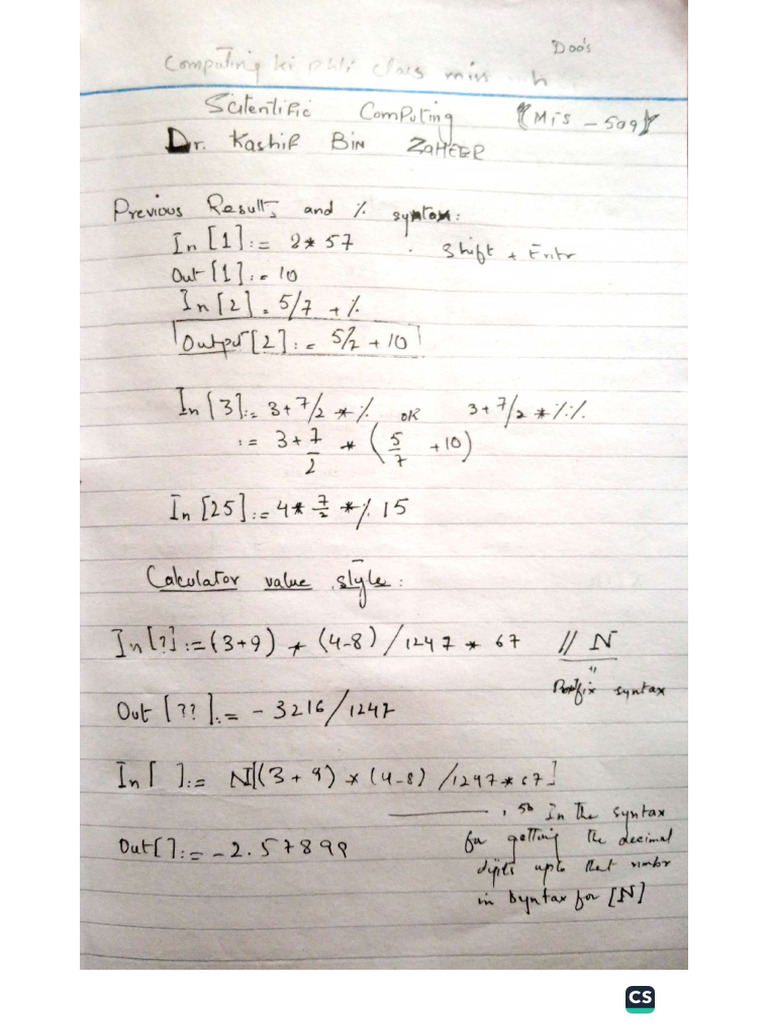 Doo's
Computing ki phli class miss
Scitentific Computing (Mis - 509)
Dr. Kashif Bin ZaHEER
Previous Results and % syntax:
In [1]:= 2* 57 . Shift + Entr
Out [1]:= 10
In [2] = 5/7 + %
Output [2]:= 5/2 + 10
In [3]:= 3+ 7/2 * % OR 3+ 7/2 * %%
:= 3 + 7/2 * (5/7 +10)
In [25]:= 4* 7/2 * % 15
Calculator value style:
In [?]:= (3+9) * (4-8) / 1247 * 67 // N
" Postfix syntax
Out [??]:= - 3216/1247
In [ ]:= N[(3 + 9) * (4-8) /1247 * 67]
, 50 In the syntax
Out[]:= - 2.57899 for getting the decimal
digits upto that number
in Syntax for [N]
CS